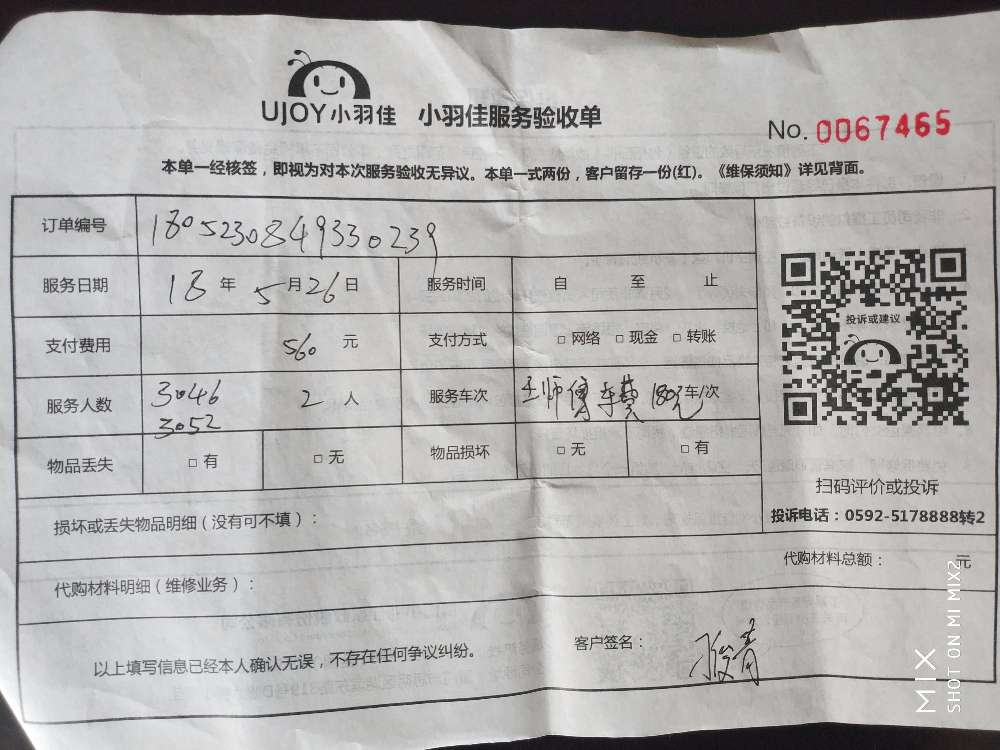 UJOY小羽佳 小羽佳服务验收单
No. 0067465
本单一经核签，即视为对本次服务验收无异议。本单一式两份，客户留存一份(红)。《维保须知》详见背面。
订单编号 180523084933 0239
服务日期 18 年 5 月 26 日 服务时间 自 至 止
投诉或建议
支付费用 560 元 支付方式 □ 网络 □ 现金 □ 转账
服务人数 3046 2 人 服务车次 王师傅车费 180元 车/次
3052
物品丢失 □ 有 □ 无 物品损坏 □ 无 □ 有
扫码评价或投诉
投诉电话：0592-5178888转2
损坏或丢失物品明细（没有可不填）：
代购材料明细（维修业务）： 代购材料总额： 元
以上填写信息已经本人确认无误，不存在任何争议纠纷。 客户签名：
MIX
SHOT ON MI MIX2